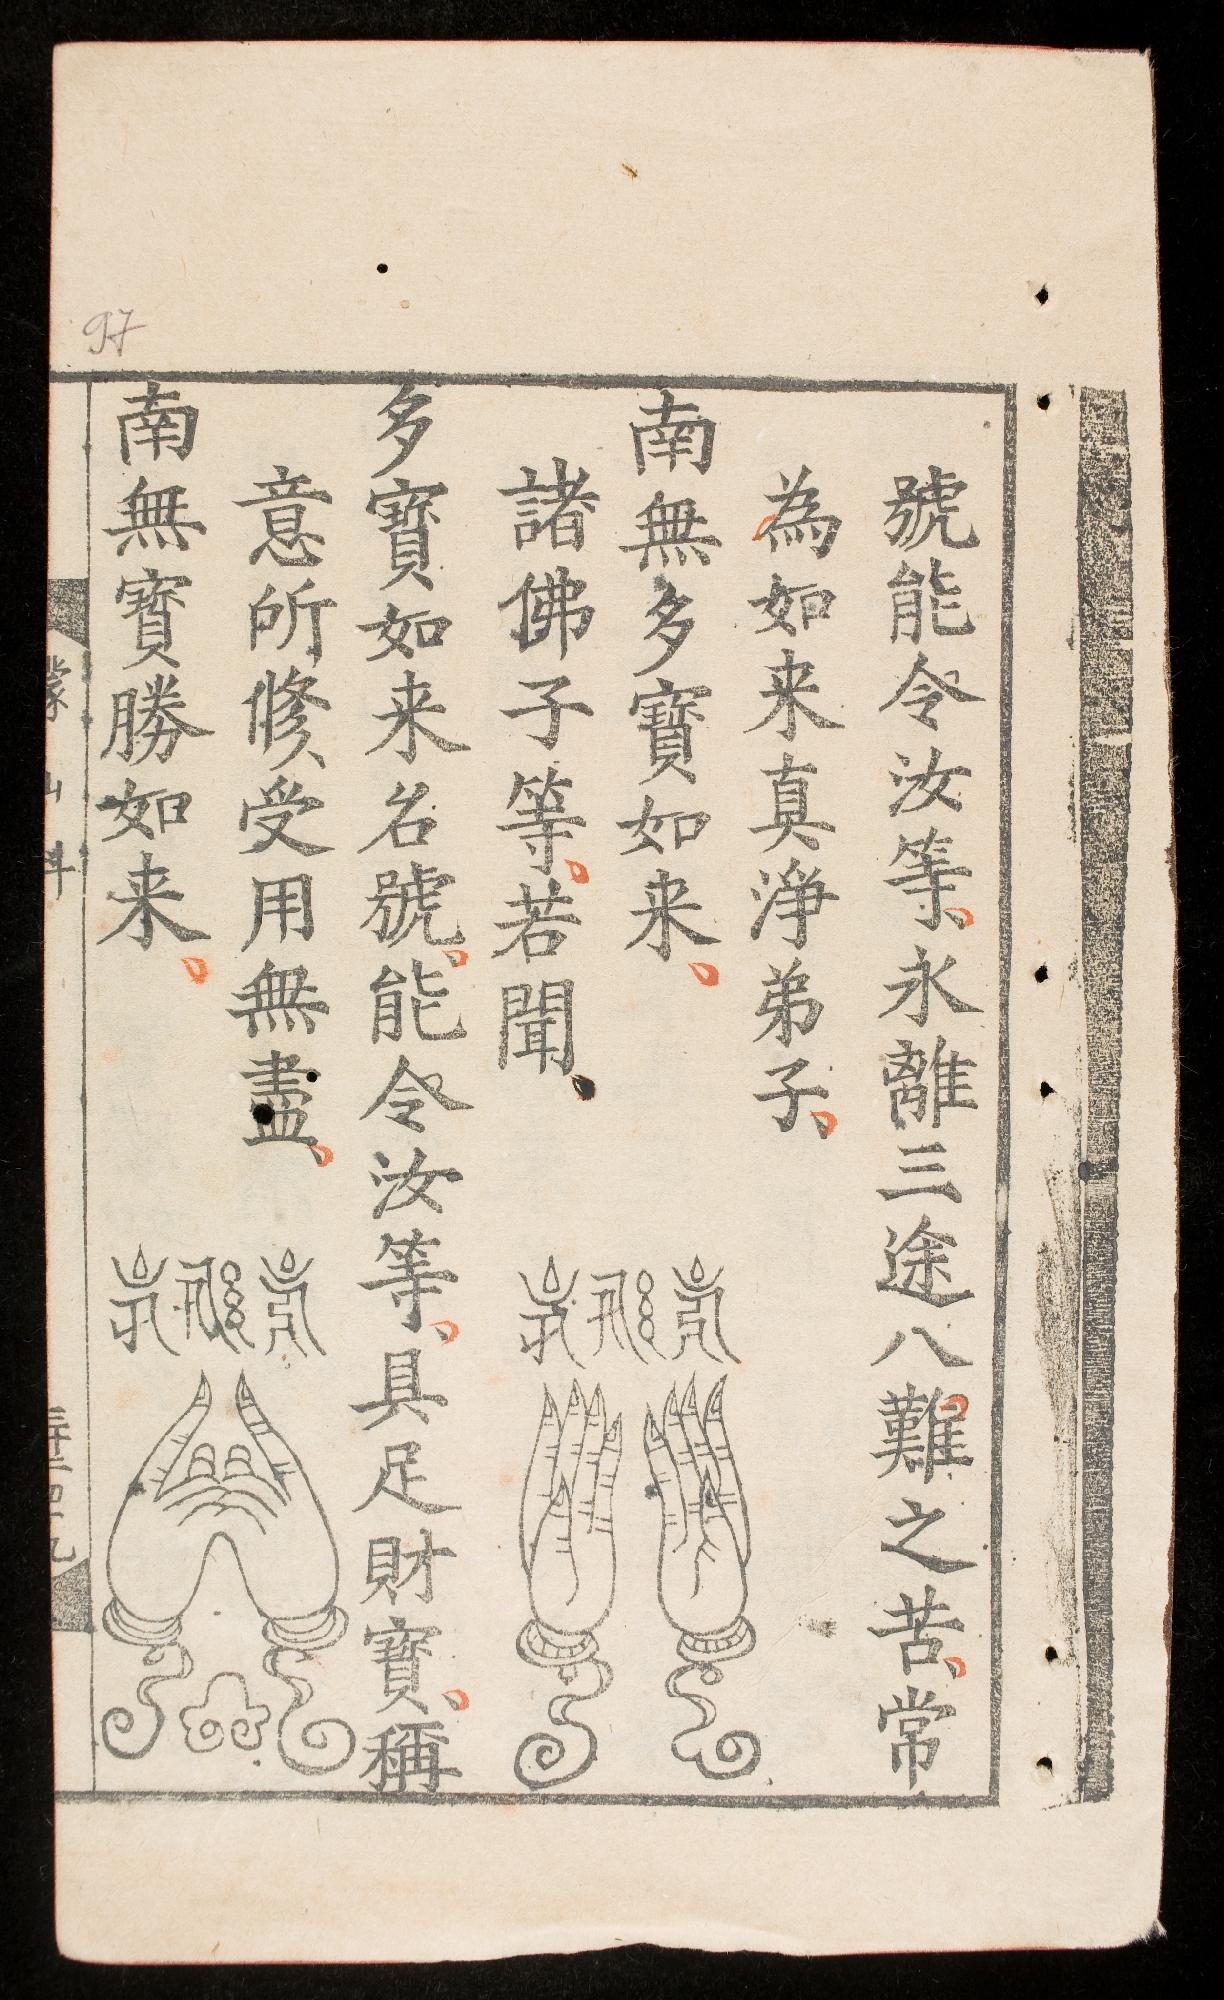 號能令汝等、永離三途八難之苦、常
為如来真淨弟子、
南無多寶如来
諸佛子等、若聞
多寶如来名號、能令汝等、具足財寶、稱
意所修、受用無盡、
南無寶勝如来
蒙山科
97